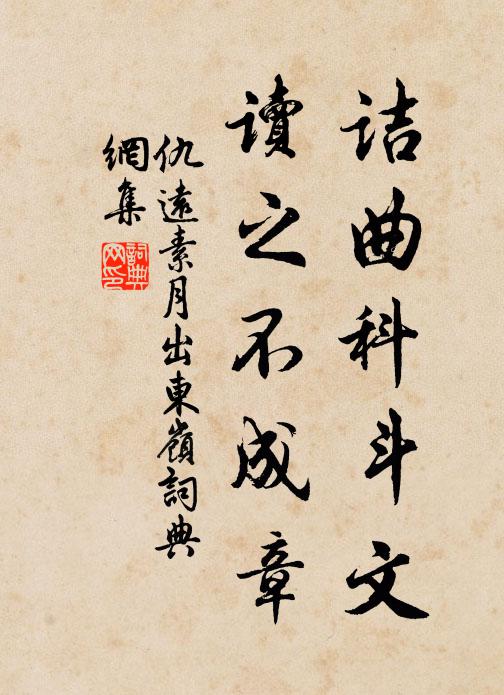 诘曲科斗文
讀之不成章
仇遠素月出東嶺詞典
網集
詞典
网印